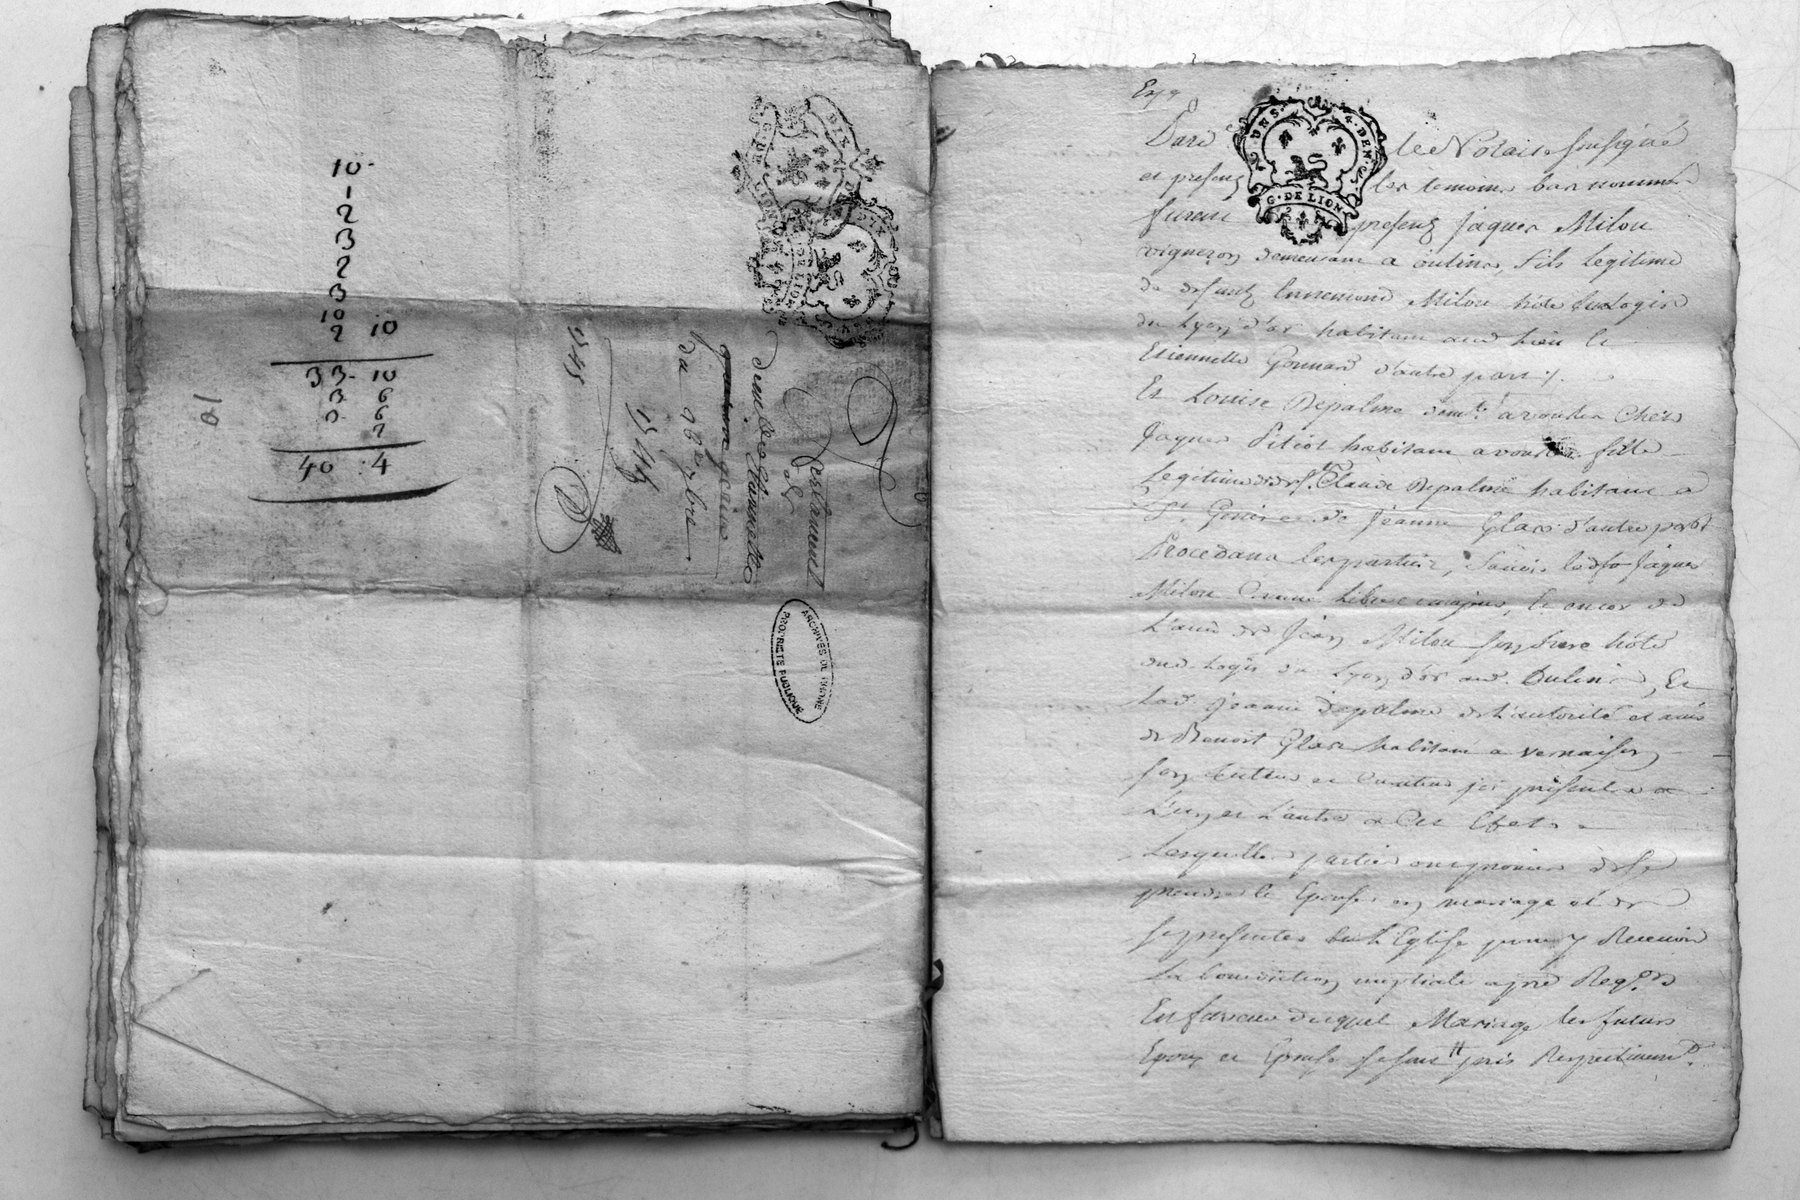 10
1
2
3
2
3
10
2 10
33- 10
3 6
0 6
2
40 : 4
Testament
de
du 9bre
1745
1745
ARCHIVES DE RHONE
PROPRIETE PUBLIQUE
G. DE LION
DIX D
G. DE LION
DIX
2. DNS. 4. DEN.
G. DE LION
Pard le Notaire soussigné
et presens les temoins bas nommés
furent presens Jaques Milou
vigneron demeurant a oulins, fils legitime
de defunt Ennemond Milou hôte du Logis
du Lyon d'or habitant aud lieu et
Etiennette Gonnard d'autre part.
Et Louise Depalme dem.t a vourles Chés
Jaques Pitiot habitant a vourles fille
Legitime de def.t Claude Depalme habitant a
St. Genis et de Jeanne Glas d'autre part
Procedant les parties, savoir led. Jaques
Milou Comme libre majeur, et encor de
L'avis de Jean Milou son frere hôte
aud. Logis du Lyon d'or aud. Oulins, Et
Lad. Jeanne Depalme de L'autorité et avis
de Benoit Glas habitant a vernaison
son tuteur et Curateur ici present a
L'un et L'autre a Cet Efet.
Lesquelles parties ont promis de se
prendre et Epouser en mariage et de
se presenter en l'Eglise pour y Recevoir
La benediction nuptiale apres Req.on
En faveur duquel Mariage les futurs
Epoux et Epouse se sont pris Respectivem.t